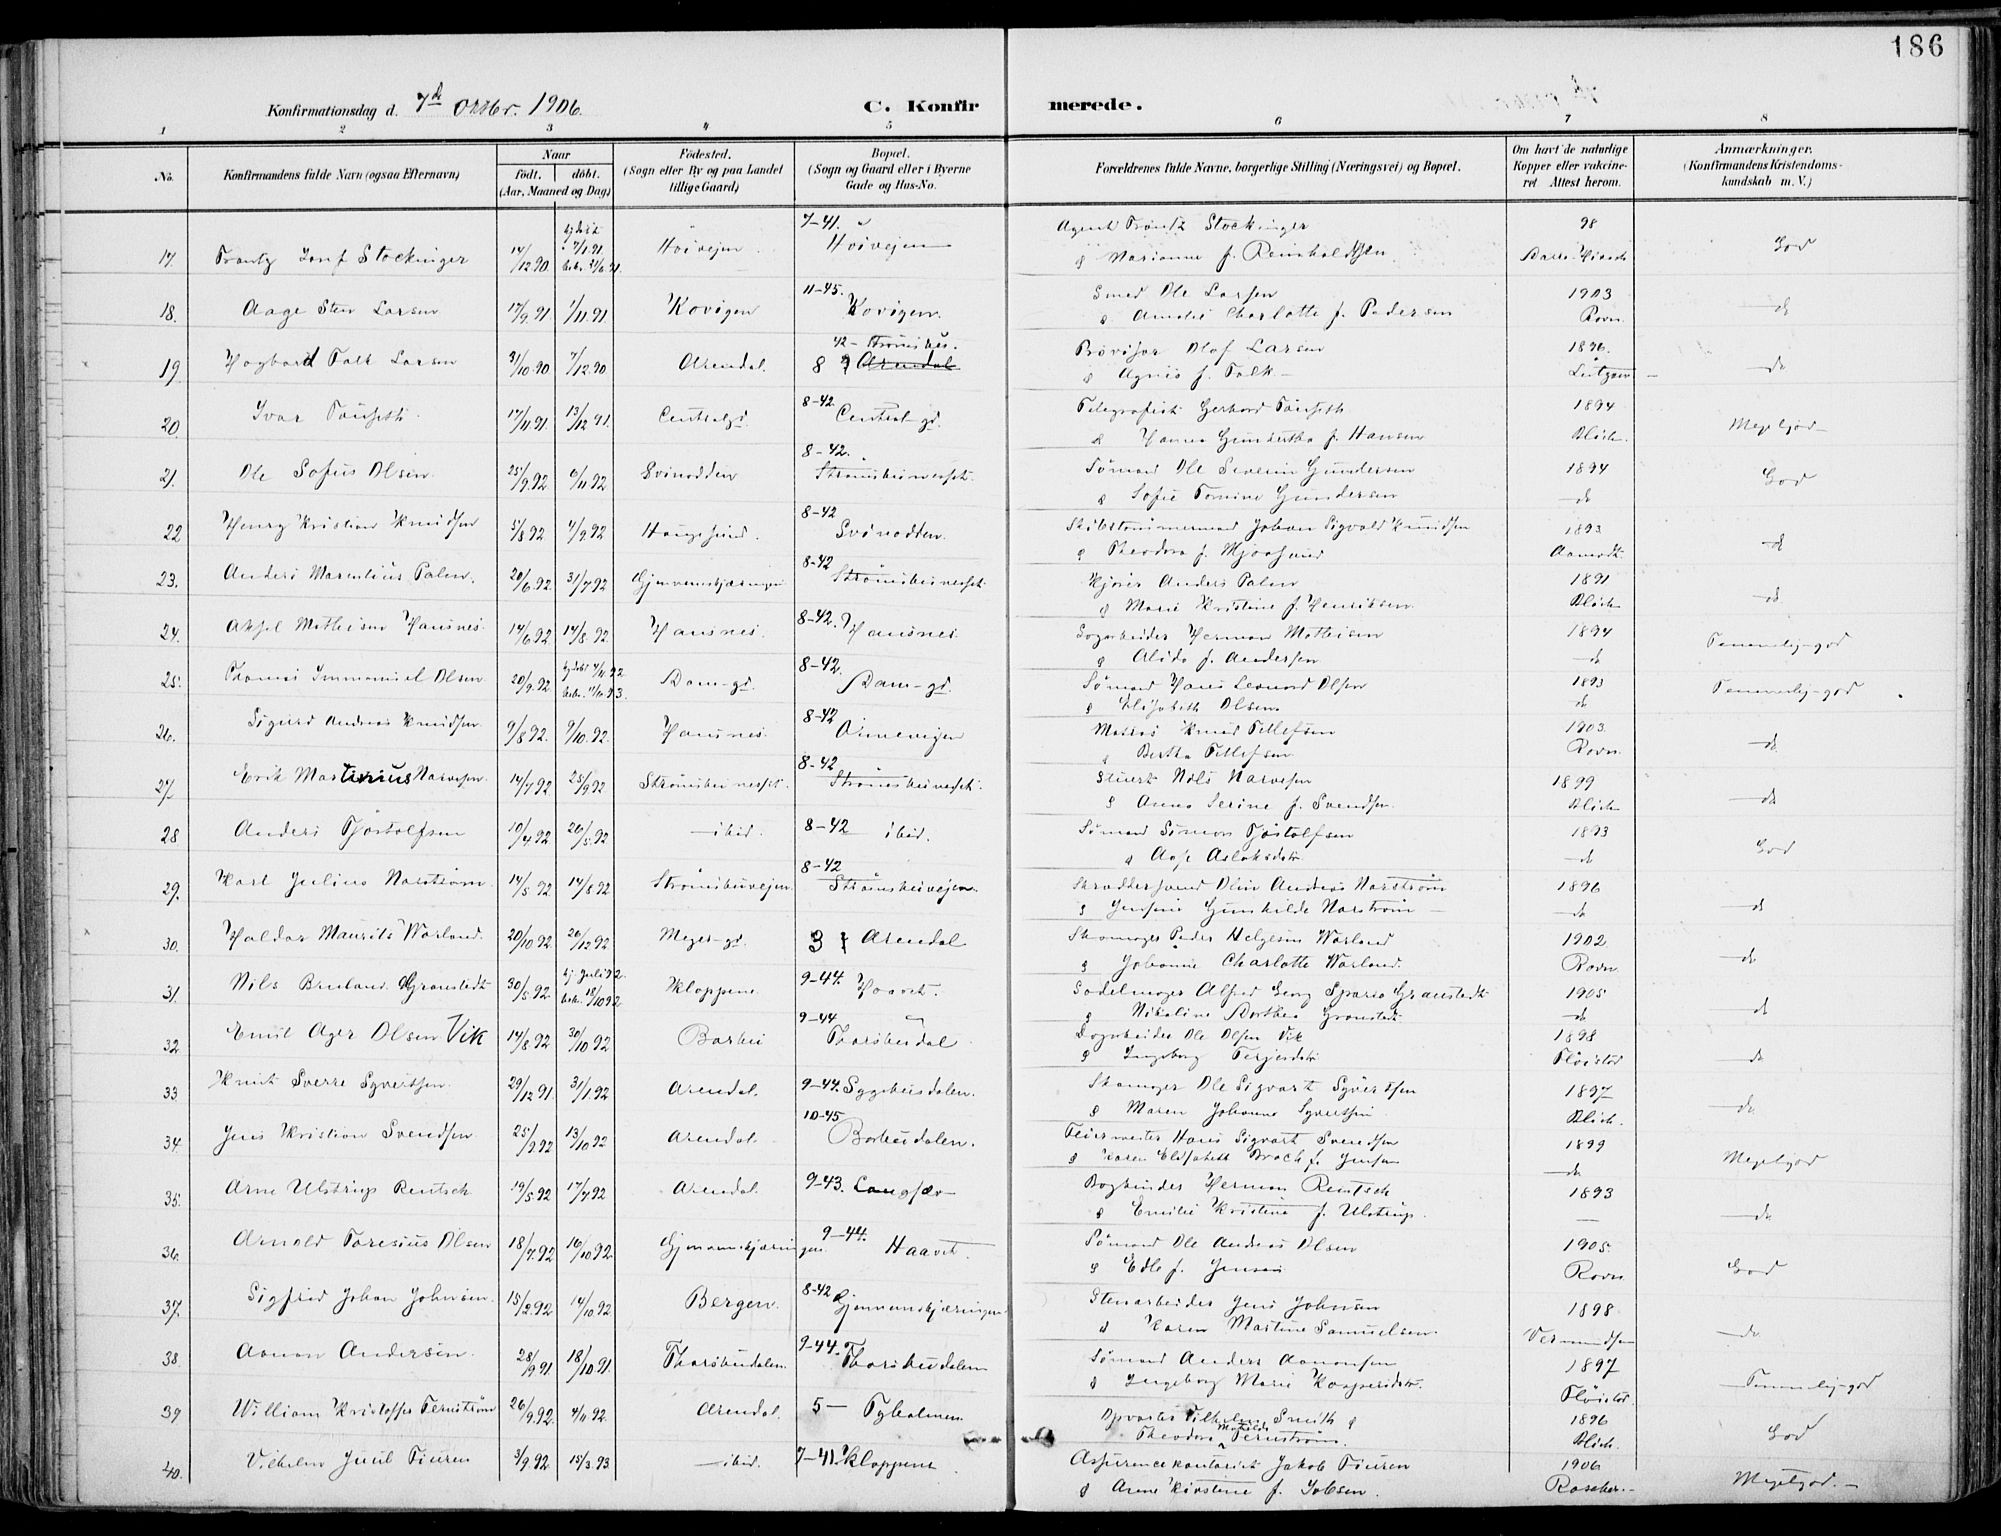 186
Konfirmationsdag d. 7de Oktbr. 1906.
C. Konfirmerede.
1 2 3 4 5 6 7 8
No.
Konfirmandens fulde Navn (ogsaa Efternavn)
Naar
født. døbt.
(Aar, Maaned og Dag)
Fødested.
(Sogn eller By og paa Landet
tillige Gaard)
Bopæl.
(Sogn og Gaard eller i Byerne
Gade og Hus-No.
Forældrenes fulde Navne, borgerlige Stilling (Næringsvei) og Bopæl.
Om havt de naturlige
Kopper eller vakcine-
ret Attest herom.
Anmærkninger.
(Konfirmandens Kristendoms-
kundskab m. V.)
17. Frantz Josef Stockinger 14/12 90 Høivejen 7-41. Høivejen Agent Frantz Stockinger 98 God
& Marianne f. Reinholdtsen
18. Aage Sten Larsen 17/9.91 1/11.91 Kovigen 11-45. Kovigen. Smed Ole Larsen 1903 do
Charlotte f. Pedersen Rovn.
19 Hagbard Falk Larsen 31/10.90 7/12.90 Arendal. 42- 8 Arendal Provisor Olaf Larsen 1896. do
& Agnes f. Falk
20 Ivar Fauseth 17/11.91 13/12 91. Centralgd. 8-42 Central gd. Telegrafist Gerhard Fauseth 1894 Megetgod
& Hanna f. Hansen Blich.
21. Ole Sofus Olsen 25/9.92 6/11.92 Svinodden 8-42. Strømsbunesset. Sømand Ole Severin Gundersen 1894 God
& Sofie Tomine Gundersen do
22 Henry Kristian Knudsen 5/8 92 4/9.92 Haugesund. 8-42 Svinodden. Skibstømmermand Johan Sigvald Knudsen 1893 do
& Theodora f. Mjaasund Aamodt
23. Anders Marentius Palen. 20/6.92 31/7 92 Gjennemskjæringen 8-42 Strømsbunesset Kjører Anders Palen 1891 do
& Marie Kristine f. Henriksen Blich
24. Aksel Mathisen Hansnes 14/6.92 14/8.92 Hansnes. 8-42. Hansnes Herman Mathisen 1894 Temmelig god
& Alida f. Andersen do
25. Thomas Immanuel Olsen 20/9.92 Dam-gd. 8-42. Dam-gd. Sømand Hans Leonard Olsen 1893 Temmelig-god
& Elisabeth Olsen. do
26. Sigurd Andreas Knudsen 9/8 92. 9/10.92. Hansnes. 8-42 Matros Knud Tellefsen 1903. do
& Bertha Tellefsen Rovn.
27. Erik Martinius Narvesen. 14/7 92 25/9 92 Strømsbunesset. 8-42 Strømsbunesset. Stuert Nils Narvesen 1899 do
& Anna Serine f. Svendsen. Blich
28 Anders Tjøstolfsen 10/4 92 26/5.92 ibid. 8-42 ibid. Sømand Simon Tjøstolfsen 1893 God
& Aase Aslaksdtr do
29. Karl Julius Norstrøm 14/5.92 14/8 92 Strømsbuvejen. 8-42 Strømsbuvejen. Skræddersvend Olin Andreas Norstrøm 1896 do
& Jensine Gunhilde Norstrøm do
30. Haldor Maurits Warland. 20/10 92 26/12 92 Meyer-gd. 3 Arendal Skomager Peder Helgesen Warland 1902 do
& Johanne Charlotte Warland. Rovn.
31. Nils Granstedt 30/5.92 Kloppene 9-44. Haavet. Sadelmager Alfred Georg Granstedt 1905 do
& Nikoline Dorthea Granstedt. do
32. Emil Ager Olsen Vik 14/8 92 30/10 92 Barbu 9-44 Tharsbudal Ole Olsen Vik 1898 do
& Ingeborg Terjesdtr Fløistad
33 Knut Sverre Syvertsen. 29/12 91 31/1.92 Arendal. 9-44. Sygehusdalen. Skomager Ole Sigvart Syvertsen 1897 do
& Maren Johanne Syvertsen Blich.
34. Jens Kristian Svendsen 25/9 92 13/10 92 Arendal. 10-45 Barbudalen. Feiermester Hans Sigvart Svendsen 1899 Megetgod
& Karen Elisabeth Broch f. Jensen do
35. Arne Ulstrup Rentsch 19/5.92 17/7 92 Arendal. 9-43. Langsæ Bogbinder Herman Rentsch 1893 do
& Emilie Kristine f. Ulstrup.
36. Arnold Taresius Olsen 18/7.92 16/10 92. Gjennemskjæringen. 9-44. Haavet. Sømand Ole Andreas Olsen 1905. God
& Edle f. Jensen Rovn.
37. Sigfred Johan Johnsen. 15/2.92 14/10.92 Bergen. 8-42 Gjennemskjæringen Stenarbeider Jens Johnsen 1898 do
& Karen Martine Samuelsen. Vermundsen
38. Aanon Andersen. 28/9 91 18/10.91. Tharsbudalen. 9-44. Tharsbudalen Sømand Anders Aanonsen 1897 Temmelig-god
& Ingeborg Marie Kaspersdtr. Fløistad.
39 William Kristoffer Ternstrøm 26/9.92. 4/11.92. Arendal. 5- Tyholmen Opvarter Vilhelm Smith & 1896 God
Theodora Mathilde Ternstrøm. Blich.
40. Vilhelm Juul Fiuren 3/9.92 15/3.93. ibid. 7-41. Kloppene Assurancekontorist Jakob Fiuren 1906 Megetgod.
& Anne Kirstine f. Jobsen. Roscher.